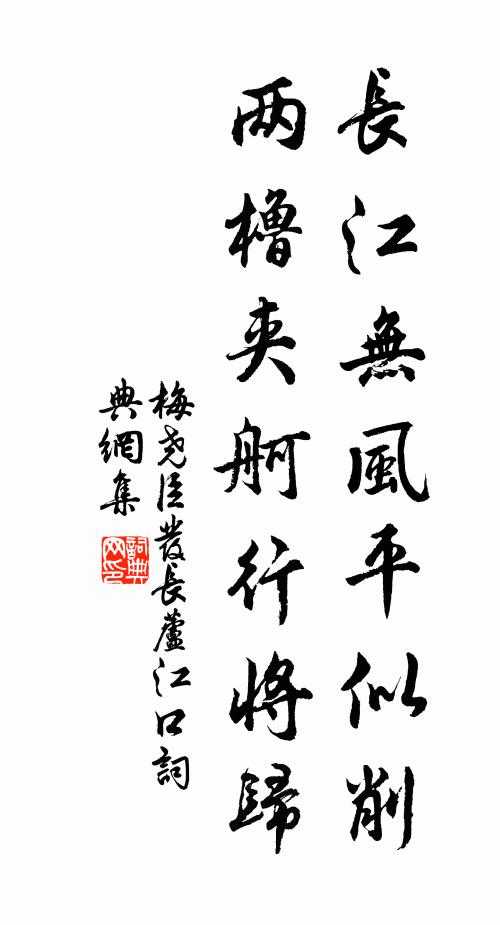 長江無風平似削
两櫓夾舸行将歸
梅尧臣發長蘆江口詞
典網集
詞典
网印